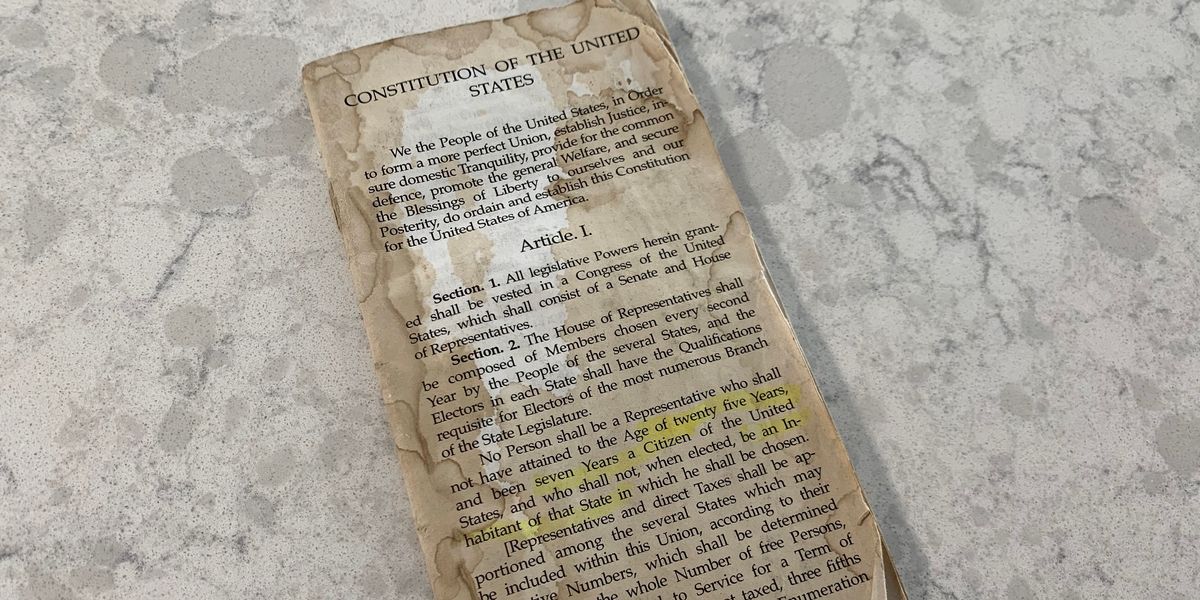 CONSTITUTION OF THE UNITED
STATES
We the People of the United States, in Order
to form a more perfect Union, establish Justice, in-
sure domestic Tranquility, provide for the common
defence, promote the general Welfare, and secure
the Blessings of Liberty to ourselves and our
Posterity, do ordain and establish this Constitution
for the United States of America.
Article. I.
Section. 1. All legislative Powers herein grant-
ed shall be vested in a Congress of the United
States, which shall consist of a Senate and House
of Representatives.
Section. 2. The House of Representatives shall
be composed of Members chosen every second
Year by the People of the several States, and the
Electors in each State shall have the Qualifications
requisite for Electors of the most numerous Branch
of the State Legislature.
No Person shall be a Representative who shall
not have attained to the Age of twenty five Years,
and been seven Years a Citizen of the United
States, and who shall not, when elected, be an In-
habitant of that State in which he shall be chosen.
[Representatives and direct Taxes shall be ap-
portioned among the several States which may
be included within this Union, according to their
Numbers, which shall be determined
the whole Number of free Persons,
to Service for a Term of
taxed, three fifths
Enumeration